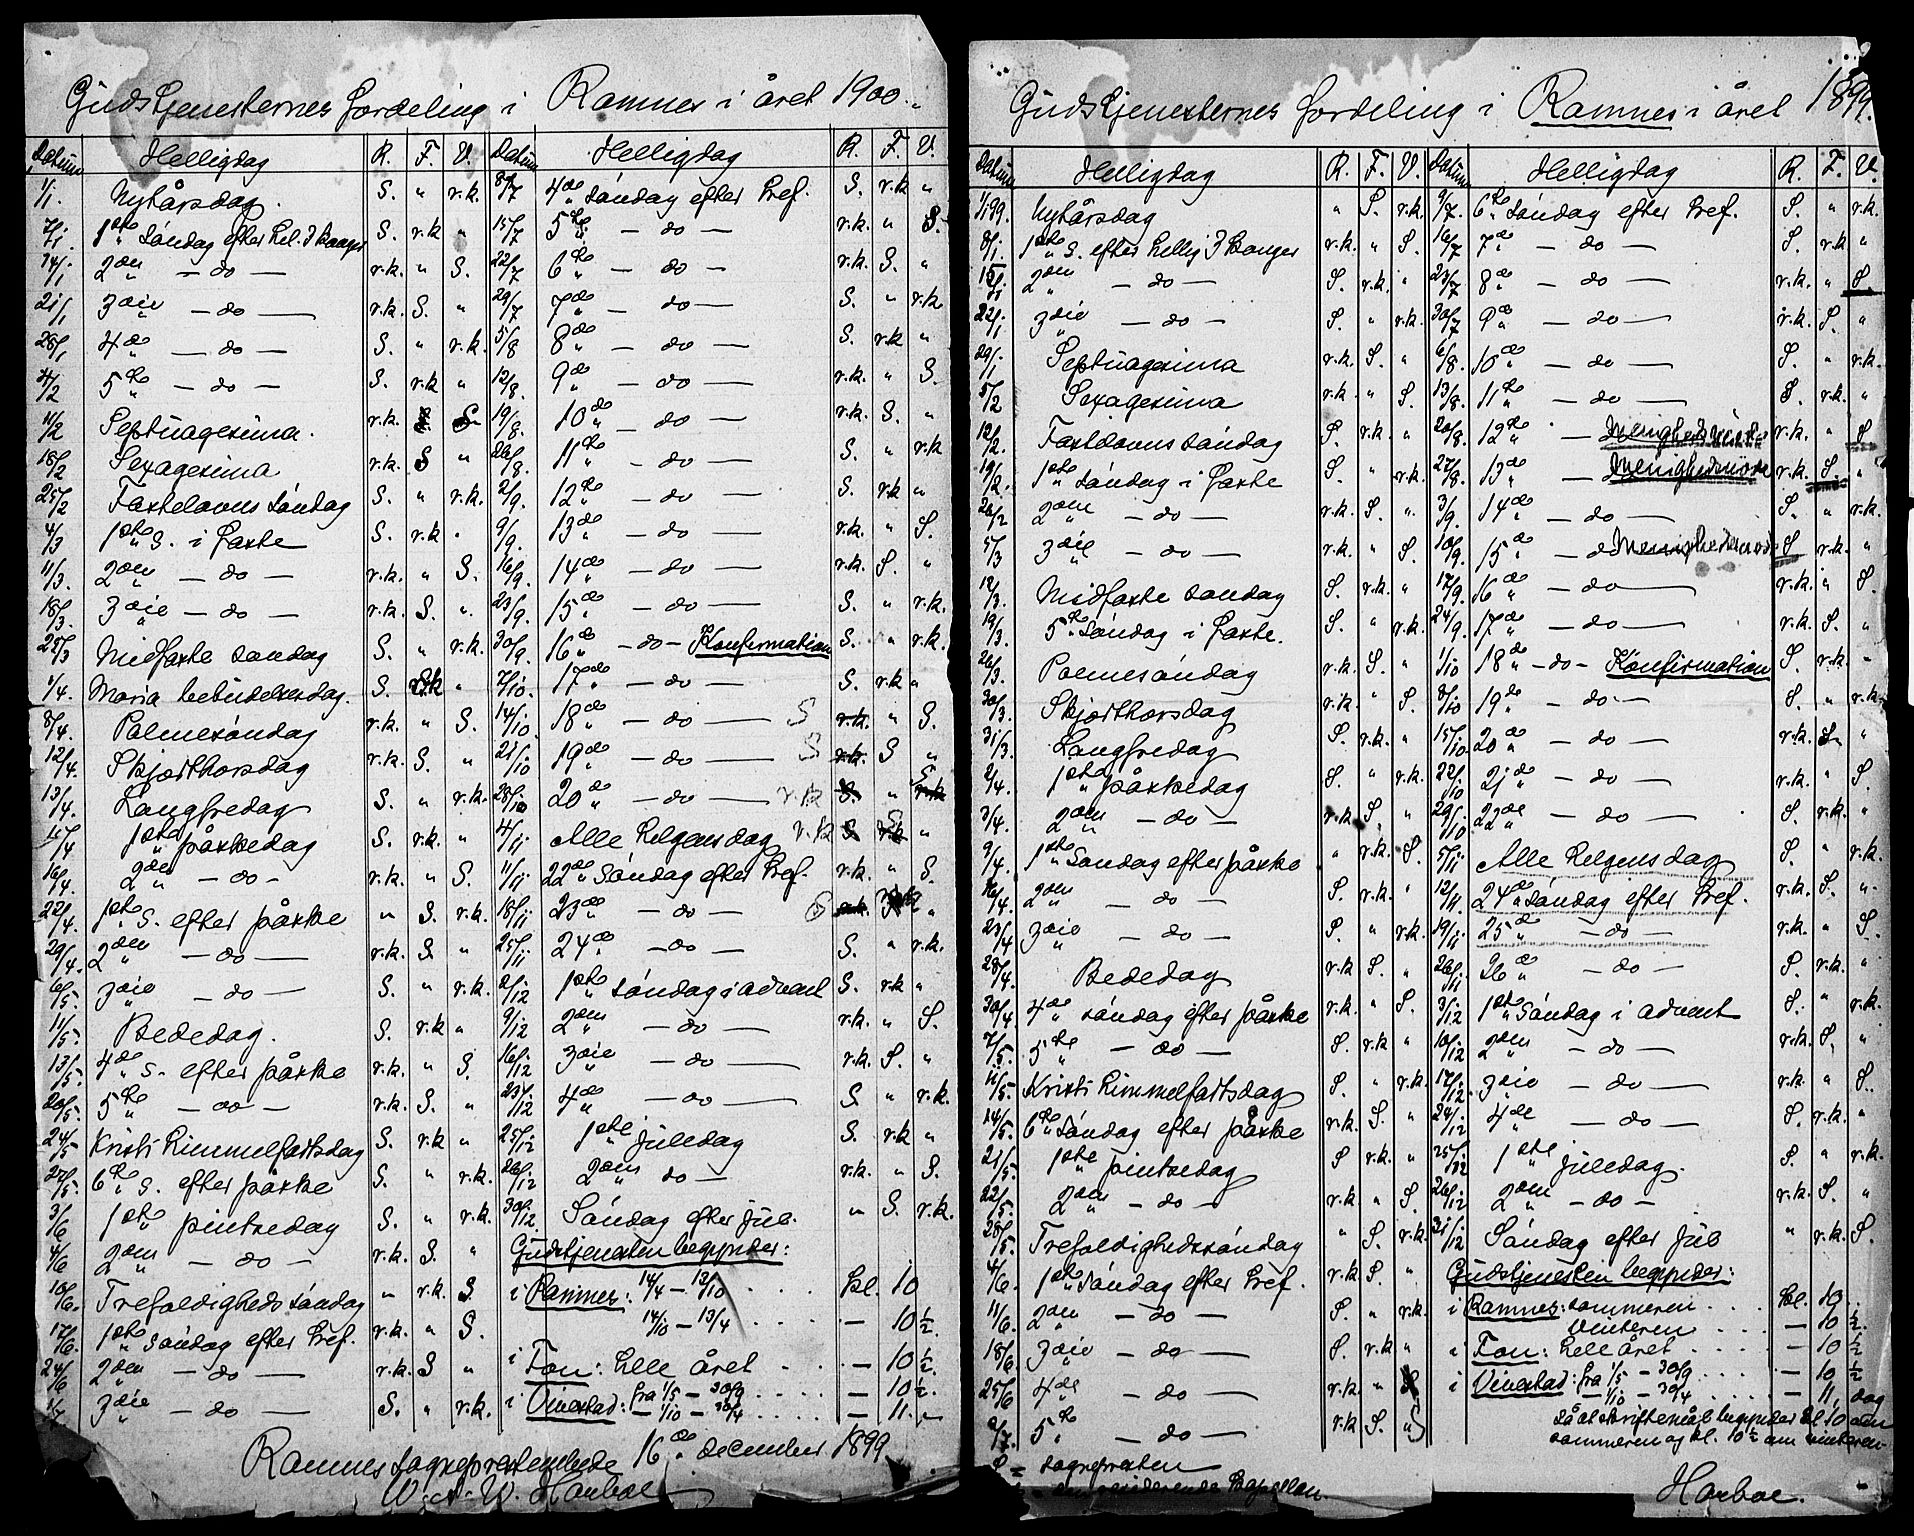 Gudstjenesternes fordeling i Ramnes i året 1900.
Datum Helligdag R. F. V.
1/1. Nytårsdag. S. " r.k.
7/1. 1ste Søndag efter hel. 3 Konger S. r.k "
14/1 2den — do — r.k. " S.
21/1 3die — do — r.k. S. "
28/1 4de — do — S. " r.k.
4/2 5te — do — S. r.k "
11/2 Septuagesima. r.k. S.
18/2 Sexagesima r.k. S "
25/2 Fastelavns søndag S. " r.k.
4/3 1ste S. i faste S. r.k "
11/3. 2den — do — r.k. " S.
18/3. 3die — do — r.k. S. "
25/3 Midfaste søndag S. " r.k.
1/4. Maria bebudelsesdag. S. r.k "
8/4. Palmesøndag r.k. " S.
12/4. Skjærthorsdag r.k. S. "
13/4. Langfredag S. " r.k.
15/4 1ste påskedag S. r.k. "
16/4. 2den — do — r.k. " S.
22/4. 1ste S. efter påske " S. r.k.
29/4. 2den — do — r.k. S. "
6/5. 3die — do — S. " r.k.
11/5. Bededag. S. r.k "
13/5. 4de S. efter påske r.k. " S.
20/5. 5te — do — r.k. S. "
24/5 Kristi himmelfartsdag S. r.k "
27/5. 6te S. efter påske S. " r.k.
3/6 1ste pintsedag S. " r.k.
4/6 2den — do — r.k. S. "
10/6. Trefoldigheds søndag " r.k. S.
17/6. 1ste søndag efter Tref. r.k. " S.
24/6 2den — do — r.k. S "
1/7 3die — do — S. " r.k.
Datum Helligdag R. F. V.
8/7 4de søndag efter Tref. S. r.k "
15/7 5te — do — r.k. " S.
22/7 6te — do — r.k. S. "
29/7 7de — do — S. " r.k
5/8 8de — do — S. r.k "
12/8. 9de — do — r.k. " S.
19/8. 10de — do — r.k. S. "
26/8. 11te — do — S. " r.k
2/9. 12te — do — S. r.k "
9/9. 13de — do — r.k. " S.
16/9. 14de — do — r.k. S. "
23/9. 15de — do — S. " r.k.
30/9. 16de — do — Konfirmation S. " r.k.
7/10. 17de — do — S. r.k "
14/10. 18de — do — S r.k. " S.
21/10 19de — do — S r.k. S "
28/10 20de — do — r.k S. " r.k S
4/11 Alle helgensdag r.k S. r.k S "
11/11 22de søndag efter Tref. r.k. " S.
18/11 23de — do — S r.k. "
25/11 24de — do — S. " r.k.
2/12 1ste søndag i advent S. r.k "
9/12 2den — do — r.k. " S.
16/12 3die — do — r.k. S. "
23/12 4de — do — S. " r.k.
25/12 1ste juledag S. r.k "
26/12 2den do — r.k. " S.
30/12. Søndag efter jul. " S. r.k.
Gudstjenesten begynder:
i Ramnes: 14/4 — 13/10 . . . kl. 10
14/10 — 13/4 . . . . — 10 ½.
i Fon: hele året . . . — 10 ½.
i Vivestad: fra 1/5 — 30/9 . . . . — 10 ½.
— 1/10 — 30/4 . . . . — 11. "
Ramnes sogneprestembede 16de december 1899
W. Harboe
Gudstjenesternes fordeling i Ramnes i året 1899.
Datum Helligdag R. F. V.
1/1 99. Nytårsdag " S. r.k.
8/1. 1ste S. efter hellig 3 Konger r.k. " S.
15/1 2den — do — S. r.k. "
22/1 3die — do — S. " r.k.
29/1 Septuagesima r.k. S. "
5/2 Sexagesima r.k. " S.
12/2. Fastelavns søndag S. r.k. "
19/2. 1ste søndag i faste S. " r.k.
26/2 2den — do — r.k. S. "
5/3 3die — do — r.k. " S.
12/3. Midfaste søndag S. r.k. "
19/3 5te søndag i faste. S. " r.k.
26/3. Palmesøndag r.k. S. "
30/3. Skjærthorsdag r.k " S.
31/3. Langfredag S. r.k. "
2/4. 1ste påskedag S. " r.k.
3/4. 2den — do — r.k. S. "
9/4. 1ste Søndag efter påske " r.k. S.
16/4. 2den — do — S. r.k. "
23/4 3die — do — S. " r.k.
28/4. Bededag r.k S. "
30/4 4de søndag efter påske r.k. " S.
7/5. 5te — do — S. r.k "
11/5. Kristi himmelfartsdag S. " r.k.
14/5. 6te søndag efter påske r.k. S. "
21/5. 1ste pintsedag S r.k. "
22/5. 2den — do — r.k. " S.
28/5. Trefoldighedssøndag " S. r.k
4/6. 1ste søndag efter Tref. r.k. S. "
11/6. 2den — do — S. " r.k.
18/6 3die — do — S. r.k "
25/6 4de — do — r.k. "
2/7. 5te — do — r.k S. "
S = sognepresten
residerende kapellan.
Datum Helligdag R. F. V.
9/7. 6te søndag efter Tref. S. " r.k.
16/7 7de — do — S. r.k "
23/7 8de — do — r.k. " S.
30/7 9de — do — r.k. S. "
6/8. 10de — do — S. " r.k.
13/8. 11te — do — S. r.k. "
20/8. 12te — Menighedsmøde r.k. " S
27/8. 13de — Menighedsmøde r.k. S. "
3/9. 14de — do — S. " r.k.
10/9. 15de — d Menighedsmøde S r.k. "
17/9. 16de — do — r.k. " S.
24/9. 17de — do — r.k. S. "
1/10 18de — do — Konfirmation S. r.k. "
8/10 19de — do — S. " r.k.
15/10 20de — do — r.k. S. "
22/10 21de — do — r.k. " S.
29/10 22de — do — S. r.k. "
5/11. Alle helgensdag S. " r.k.
12/11. 24de søndag efter Tref. r.k. S. "
19/11 25de — do — r.k. " S.
26/11 26de — do — S. r.k. "
3/12 1ste Søndag i advent S. " r.k.
10/12 2den — do — r.k. S. "
17/12. 3die — do — r.k. " S.
24/12 4de — do — S. r.k. "
25/12 1ste juledag. S. " r.k.
26/12 2den — do — r.k. S. "
31/12 Søndag efter jul " r.k. S.
Gudstjenesten begynder:
i Ramnes: sommeren . . . kl. 10.
vinteren . . . . — 10 ½.
i Fon: hele året . . . . — 10 ½
i Vivestad: fra 1/5 — 30/9 . . . — 10 ½
— 1/10 — 30/4 . . . . — 11, dog
så at skriftemål begynder kl. 10 om
sommeren og kl. 10 ½ om vinteren.
Harboe.